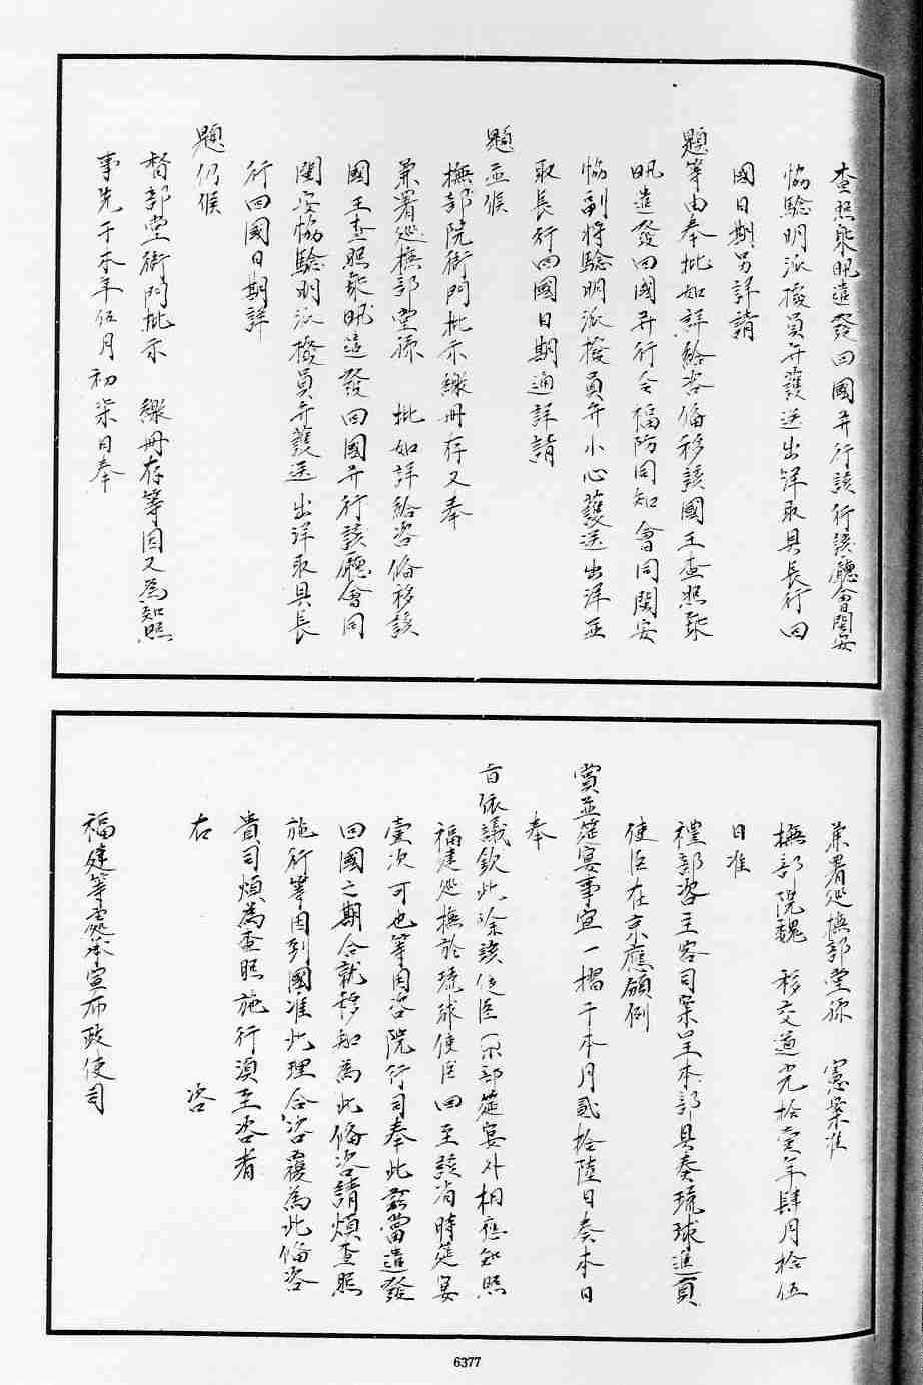 查照來帆遣發回國并行該行該廳會閩安
協驗明派撥員弁護送出洋取具長行回
國日期另詳請
題等由奉批如詳給咨俻移該國王查照來
帆遣發回國并行令福防同知會同閩安
協副將驗明派撥員弁小心護送出洋並
取長行回國日期通詳請
題並候
撫部院衙門批示繳冊存又奉
兼署巡撫部堂孫 批如詳給咨俻移該
國王查照來帆遣發回國并行該廳會同
閩安協驗明派撥員弁護送出洋取具長
行回國日期詳
題仍候
督部堂衙門批示 繳冊存等因又為知照
事先于本年伍月初柒日奉
兼署巡撫部堂孫 憲案准
撫部院魏 移交道光拾壹年肆月拾伍
日准
禮部咨主客司案呈本部具奏琉球進貢
使臣在京應領例
賞並筵宴事宜一摺于本月貳拾陸日奏本日
奉
旨依議欽此除該使臣一示部筵宴外相應知照
福建巡撫於琉球使臣回至該省時筵宴
壹次可也等因咨院行司奉此茲當遣發
回國之期合就移知為此俻咨請煩查照
施行等因到國准此理合咨覆為此俻咨
貴司煩為查照施行須至咨者
右 咨
福建等處承宣布政使司
6377